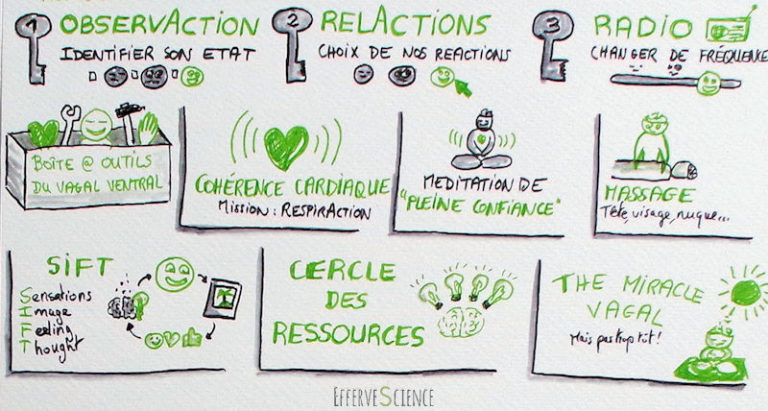 1 OBSERVACTION
IDENTIFIER SON ETAT
2 RELACTIONS
CHOIX DE NOS REACTIONS
3 RADIO
CHANGER DE FRÉQUENCE
BOÎTE @ OUTILS
DU VAGAL VENTRAL
COHÉRENCE CARDIAQUE
MISSION : RESPIRACTION
MEDITATION DE
"PLEINE CONFIANCE"
MASSAGE
Tête, visage, nuque...
SIFT
Sensations
Image
Feeling
Thought
CERCLE
DES
RESSOURCES
THE MIRACLE
VAGAL
Mais pas trop tôt!
EFFERVESCIENCE